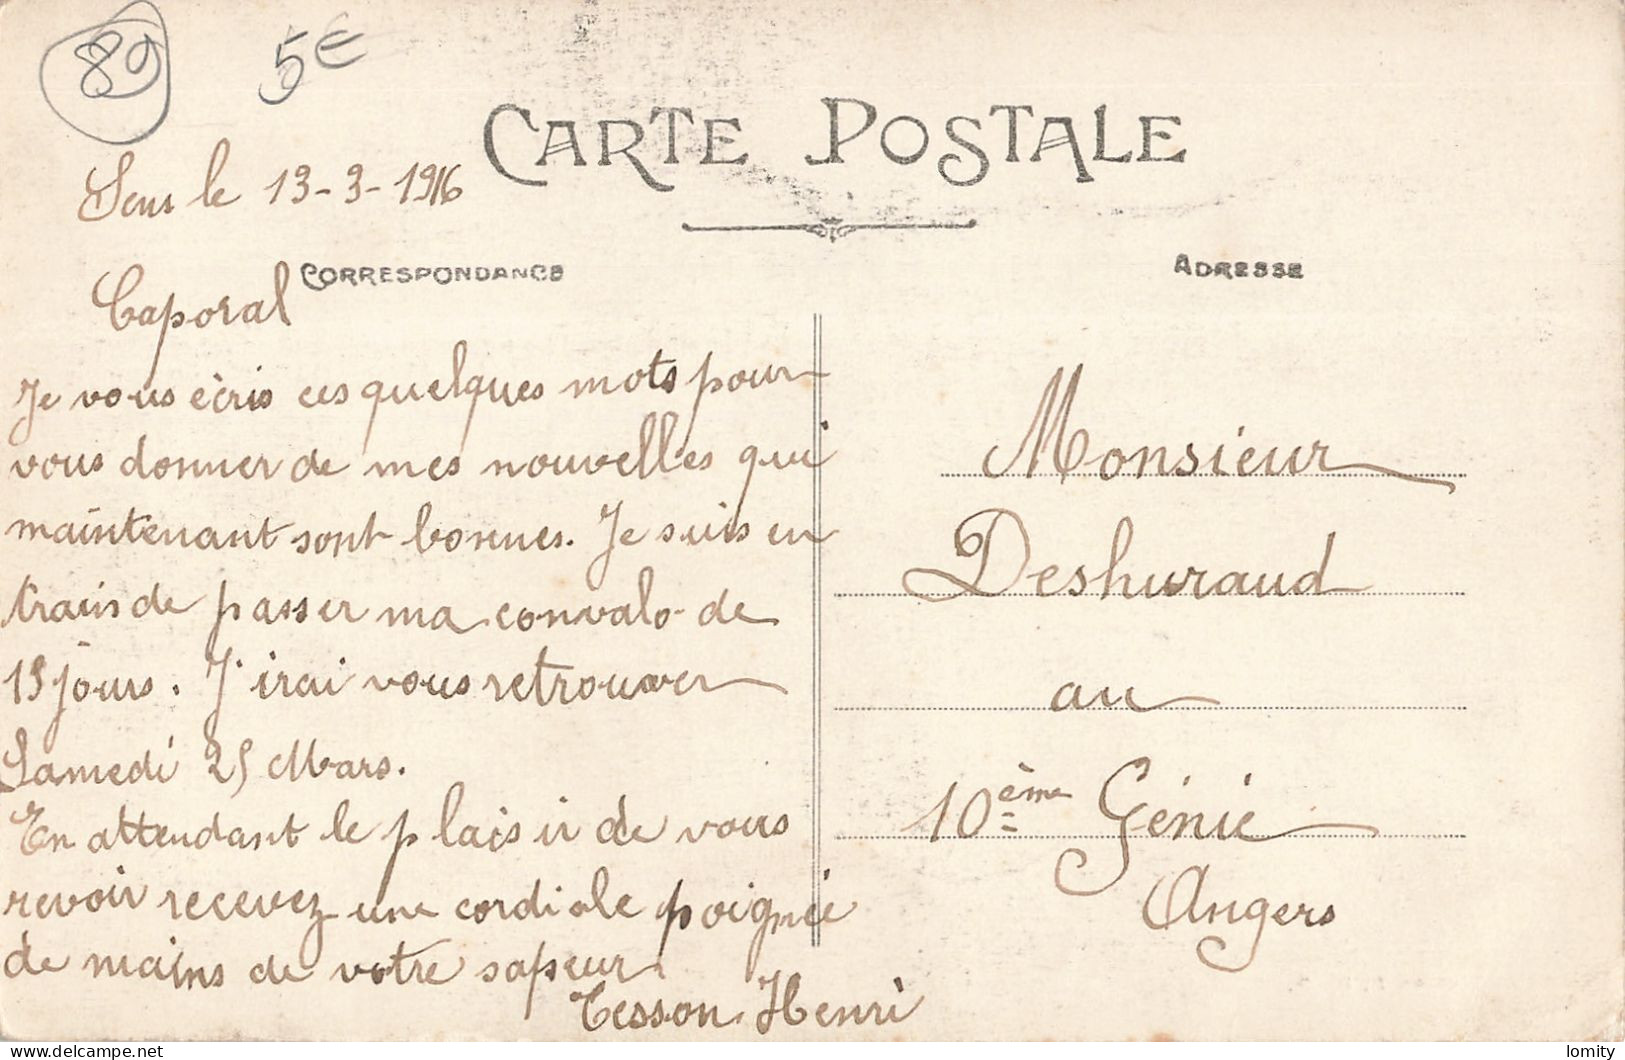 89 5€
CARTE POSTALE
Sens le 13-3-1916
CORRESPONDANCE
ADRESSE
Caporal
Je vous écris ces quelques mots pour
vous donner de mes nouvelles qui
maintenant sont bonnes. Je suis en
train de passer ma convalo de
15 jours. J'irai vous retrouver
Samedi 25 Mars.
En attendant le plaisir de vous
revoir recevez une cordiale poignée
de mains de votre sapeur
Tesson Henri
Monsieur
Deshuraud
au
10ème Génie
Angers
www.delcampe.net
lomity